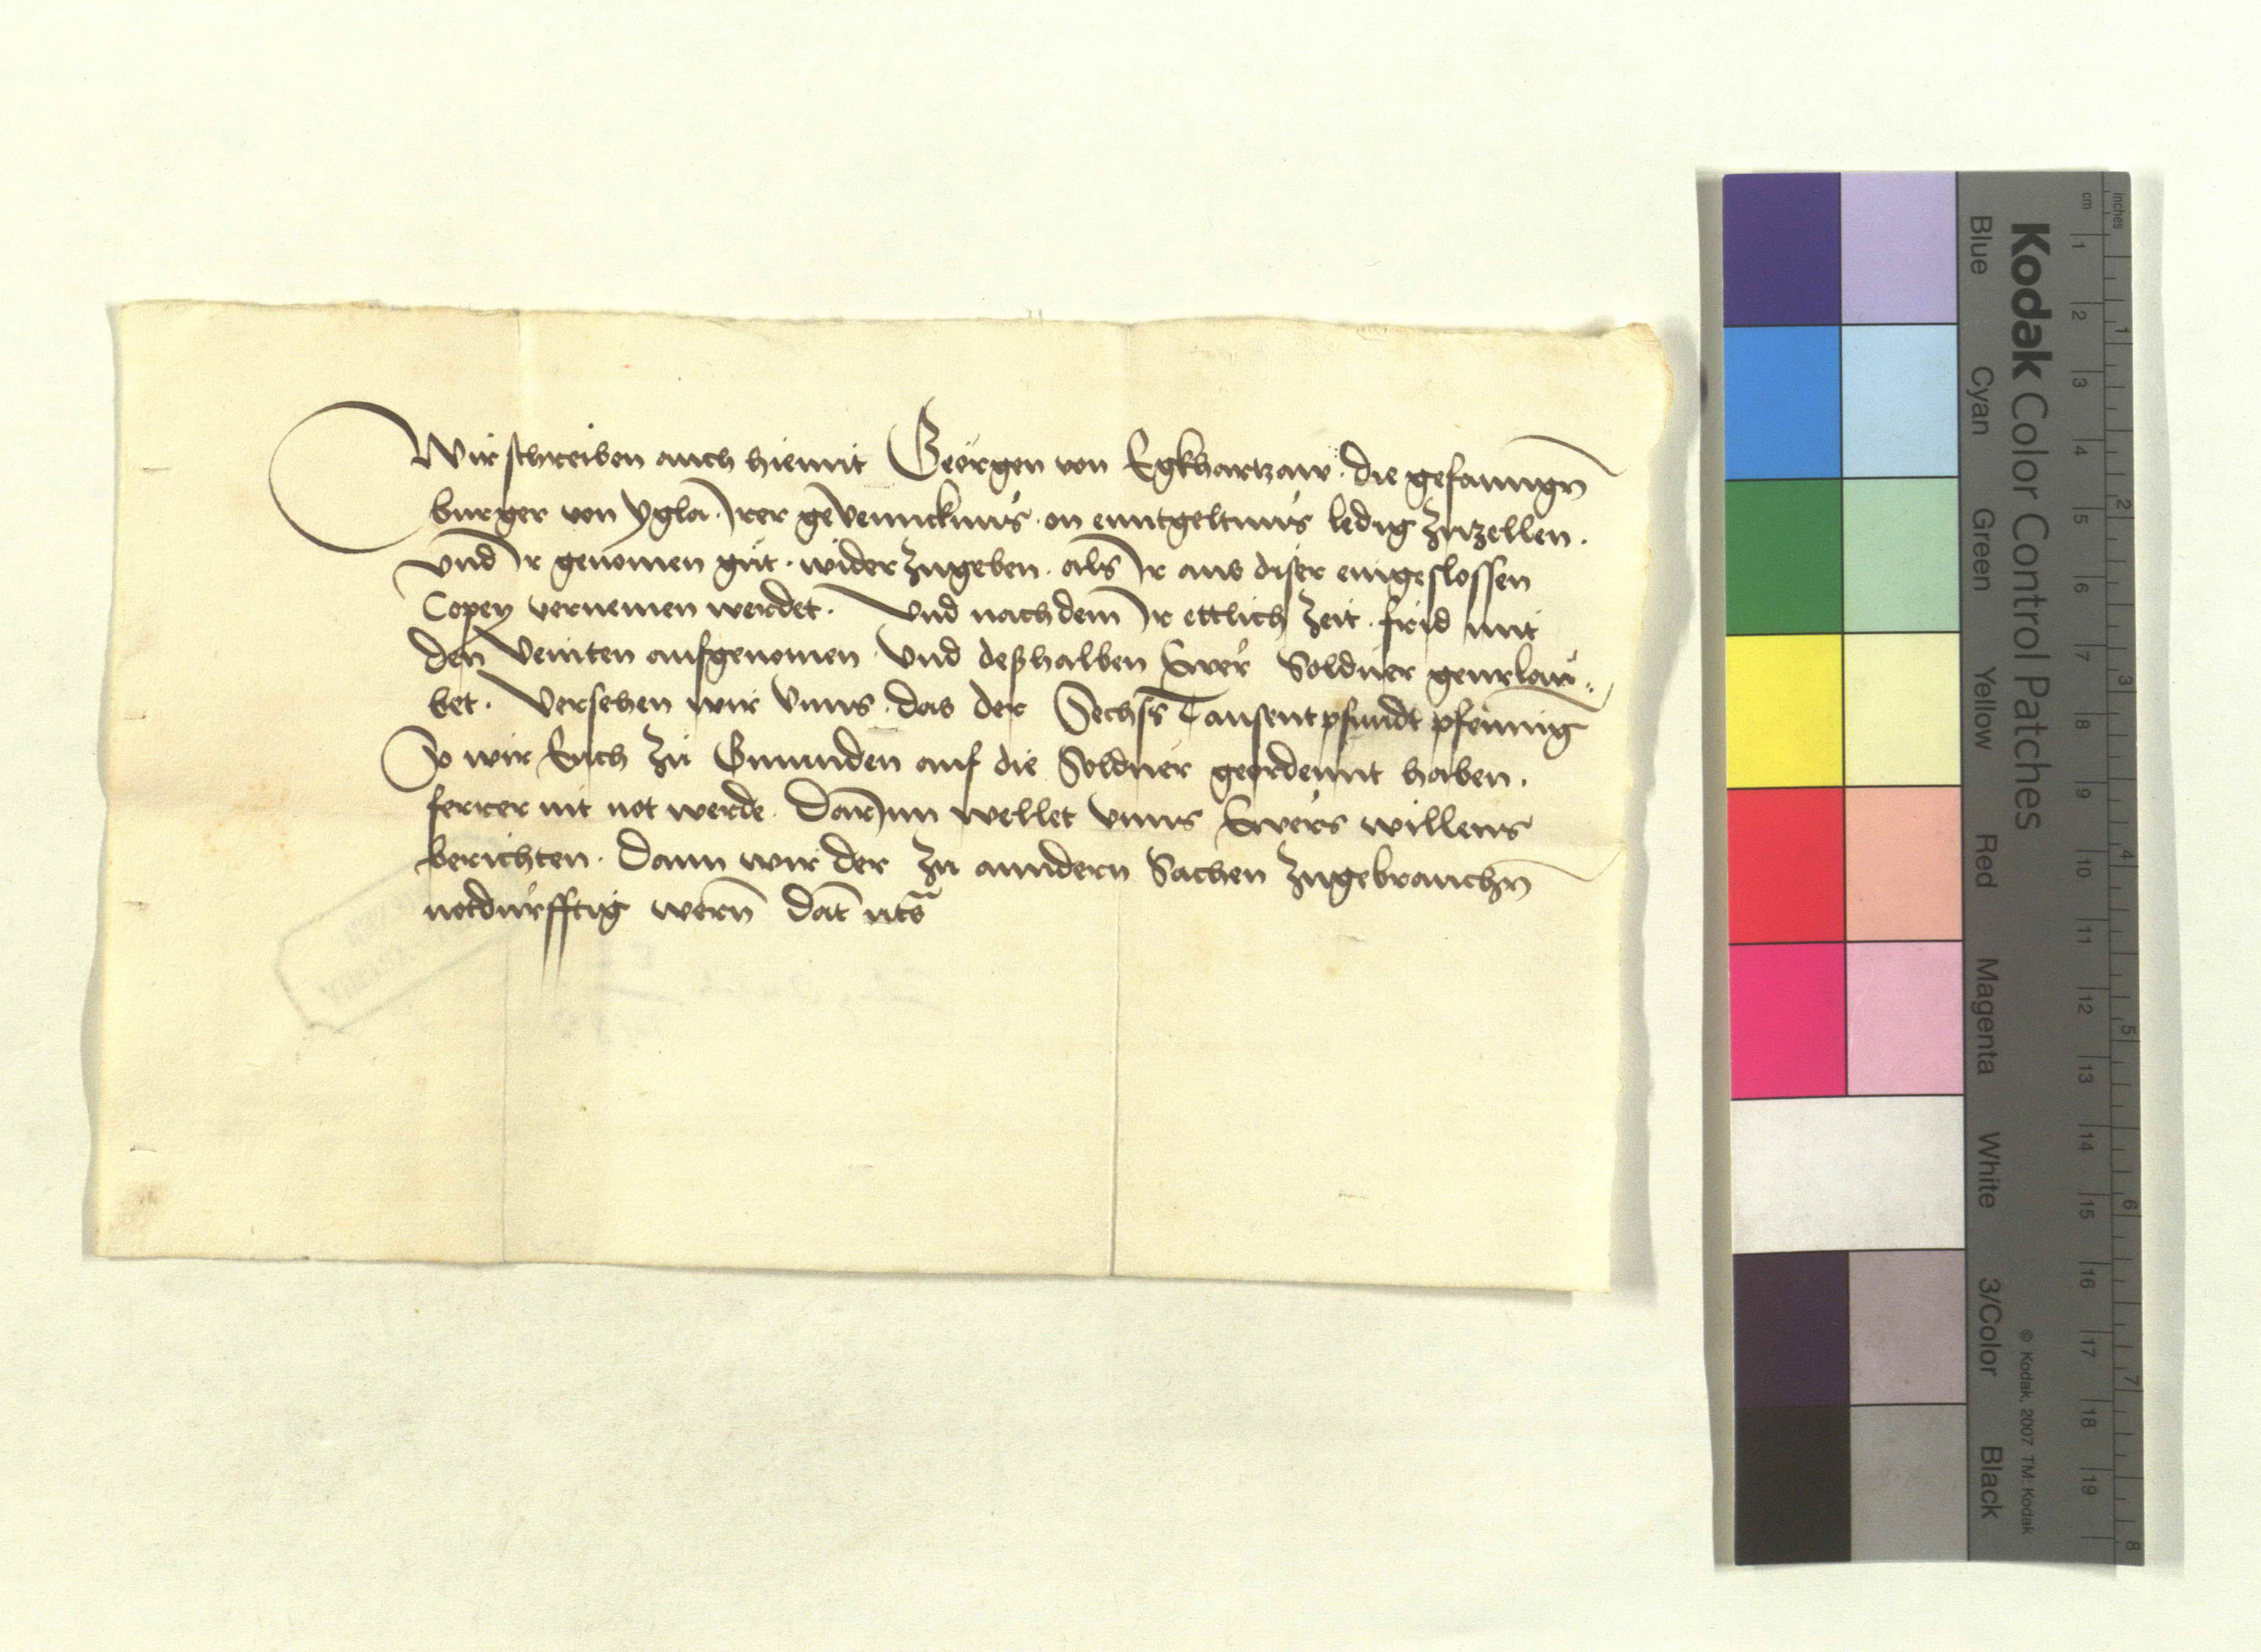 Wir schreiben auch hiemit Georgen von Egkhartzaw. die gefanngn̄
burger von Ygla. Irer gevenncknus. on enntgeltnus ledig zuzellen.
vnd Ir genomen gut. wider zugeben. als Ir aus diser eingeslossen
Copey vernemen werdet. Vnd nachdem Ir ettlich Zeit. frid mit
den Veinten aufgenomen Vnd deßhalben Ewr Soldner geurlau
bet. Versehen wir Vnns. das der Sechss Tausent pfundt pfenning
So wir Euch zu Gmunden auf die Soldner geordennt haben.
ferrer nit not werde. DarInn wellet vnns Ewers willens
berichten. Dann wir der zu anndern Sachen zugebrauchn̄
notdurfftig wern̄ Dat̄ uts̄
Kodak Color Control Patches
Blue Cyan Green Yellow Red Magenta White 3/Color Black
© Kodak, 2007 TM: Kodak
inches 1 2 3 4 5 6 7 8
cm 1 2 3 4 5 6 7 8 9 10 11 12 13 14 15 16 17 18 19